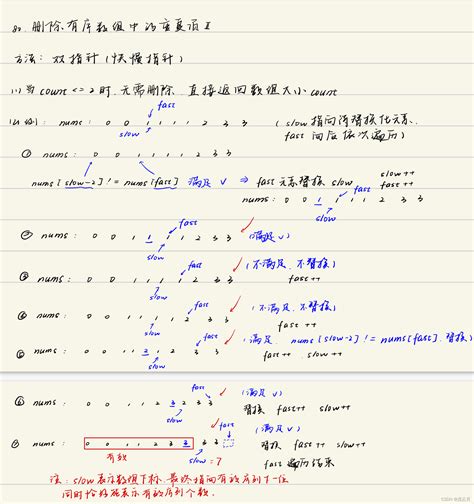 80. 删除有序数组中的重复项 II
方法: 双指针 (快慢指针)
(1) 当 count <= 2 时, 无需删除, 直接返回数组大小 count
fast
(2) 例: nums: 0 0 1 1 1 1 2 3 3 (slow 指向待替换位元素,
slow
fast 向后依次遍历)
① nums: 0 0 1 1 1 1 2 3 3
nums[slow-2] != nums[fast] 满足 √ ⇒ fast 元素替换 slow
slow++
fast++
fast
nums: 0 0 1 1 1 1 2 3 3
slow
fast
② nums: 0 0 1 1 1 1 2 3 3 (满足 √)
slow
fast
③ nums: 0 0 1 1 1 1 2 3 3 (不满足, 不替换)
slow
fast++
fast
④ nums: 0 0 1 1 1 1 2 3 3 (不满足, 不替换)
slow
fast++
fast
⑤ nums: 0 0 1 1 2 1 2 3 3 (满足, nums[slow-2] != nums[fast], 替换)
slow
fast++ slow++
fast
⑥ nums: 0 0 1 1 2 3 2 3 3 (满足 √)
slow
替换 fast++ slow++
fast
⑦ nums: 0 0 1 1 2 3 3 3 3 (满足 √)
替换 fast++ slow++
有效
slow = 7
fast 遍历结束
注: slow 表示数组下标, 最终指向有效序列下一位
同时恰好能表示有效序列个数.